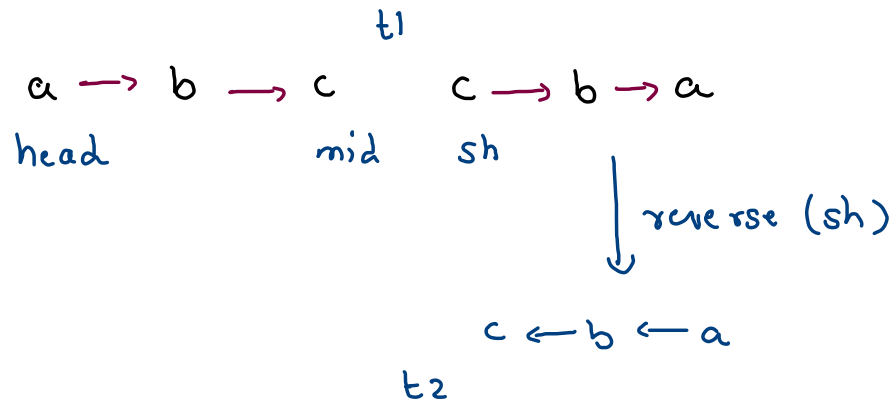 t1
a → b → c c → b → a
head mid sh
reverse (sh)
c ← b ← a
t2